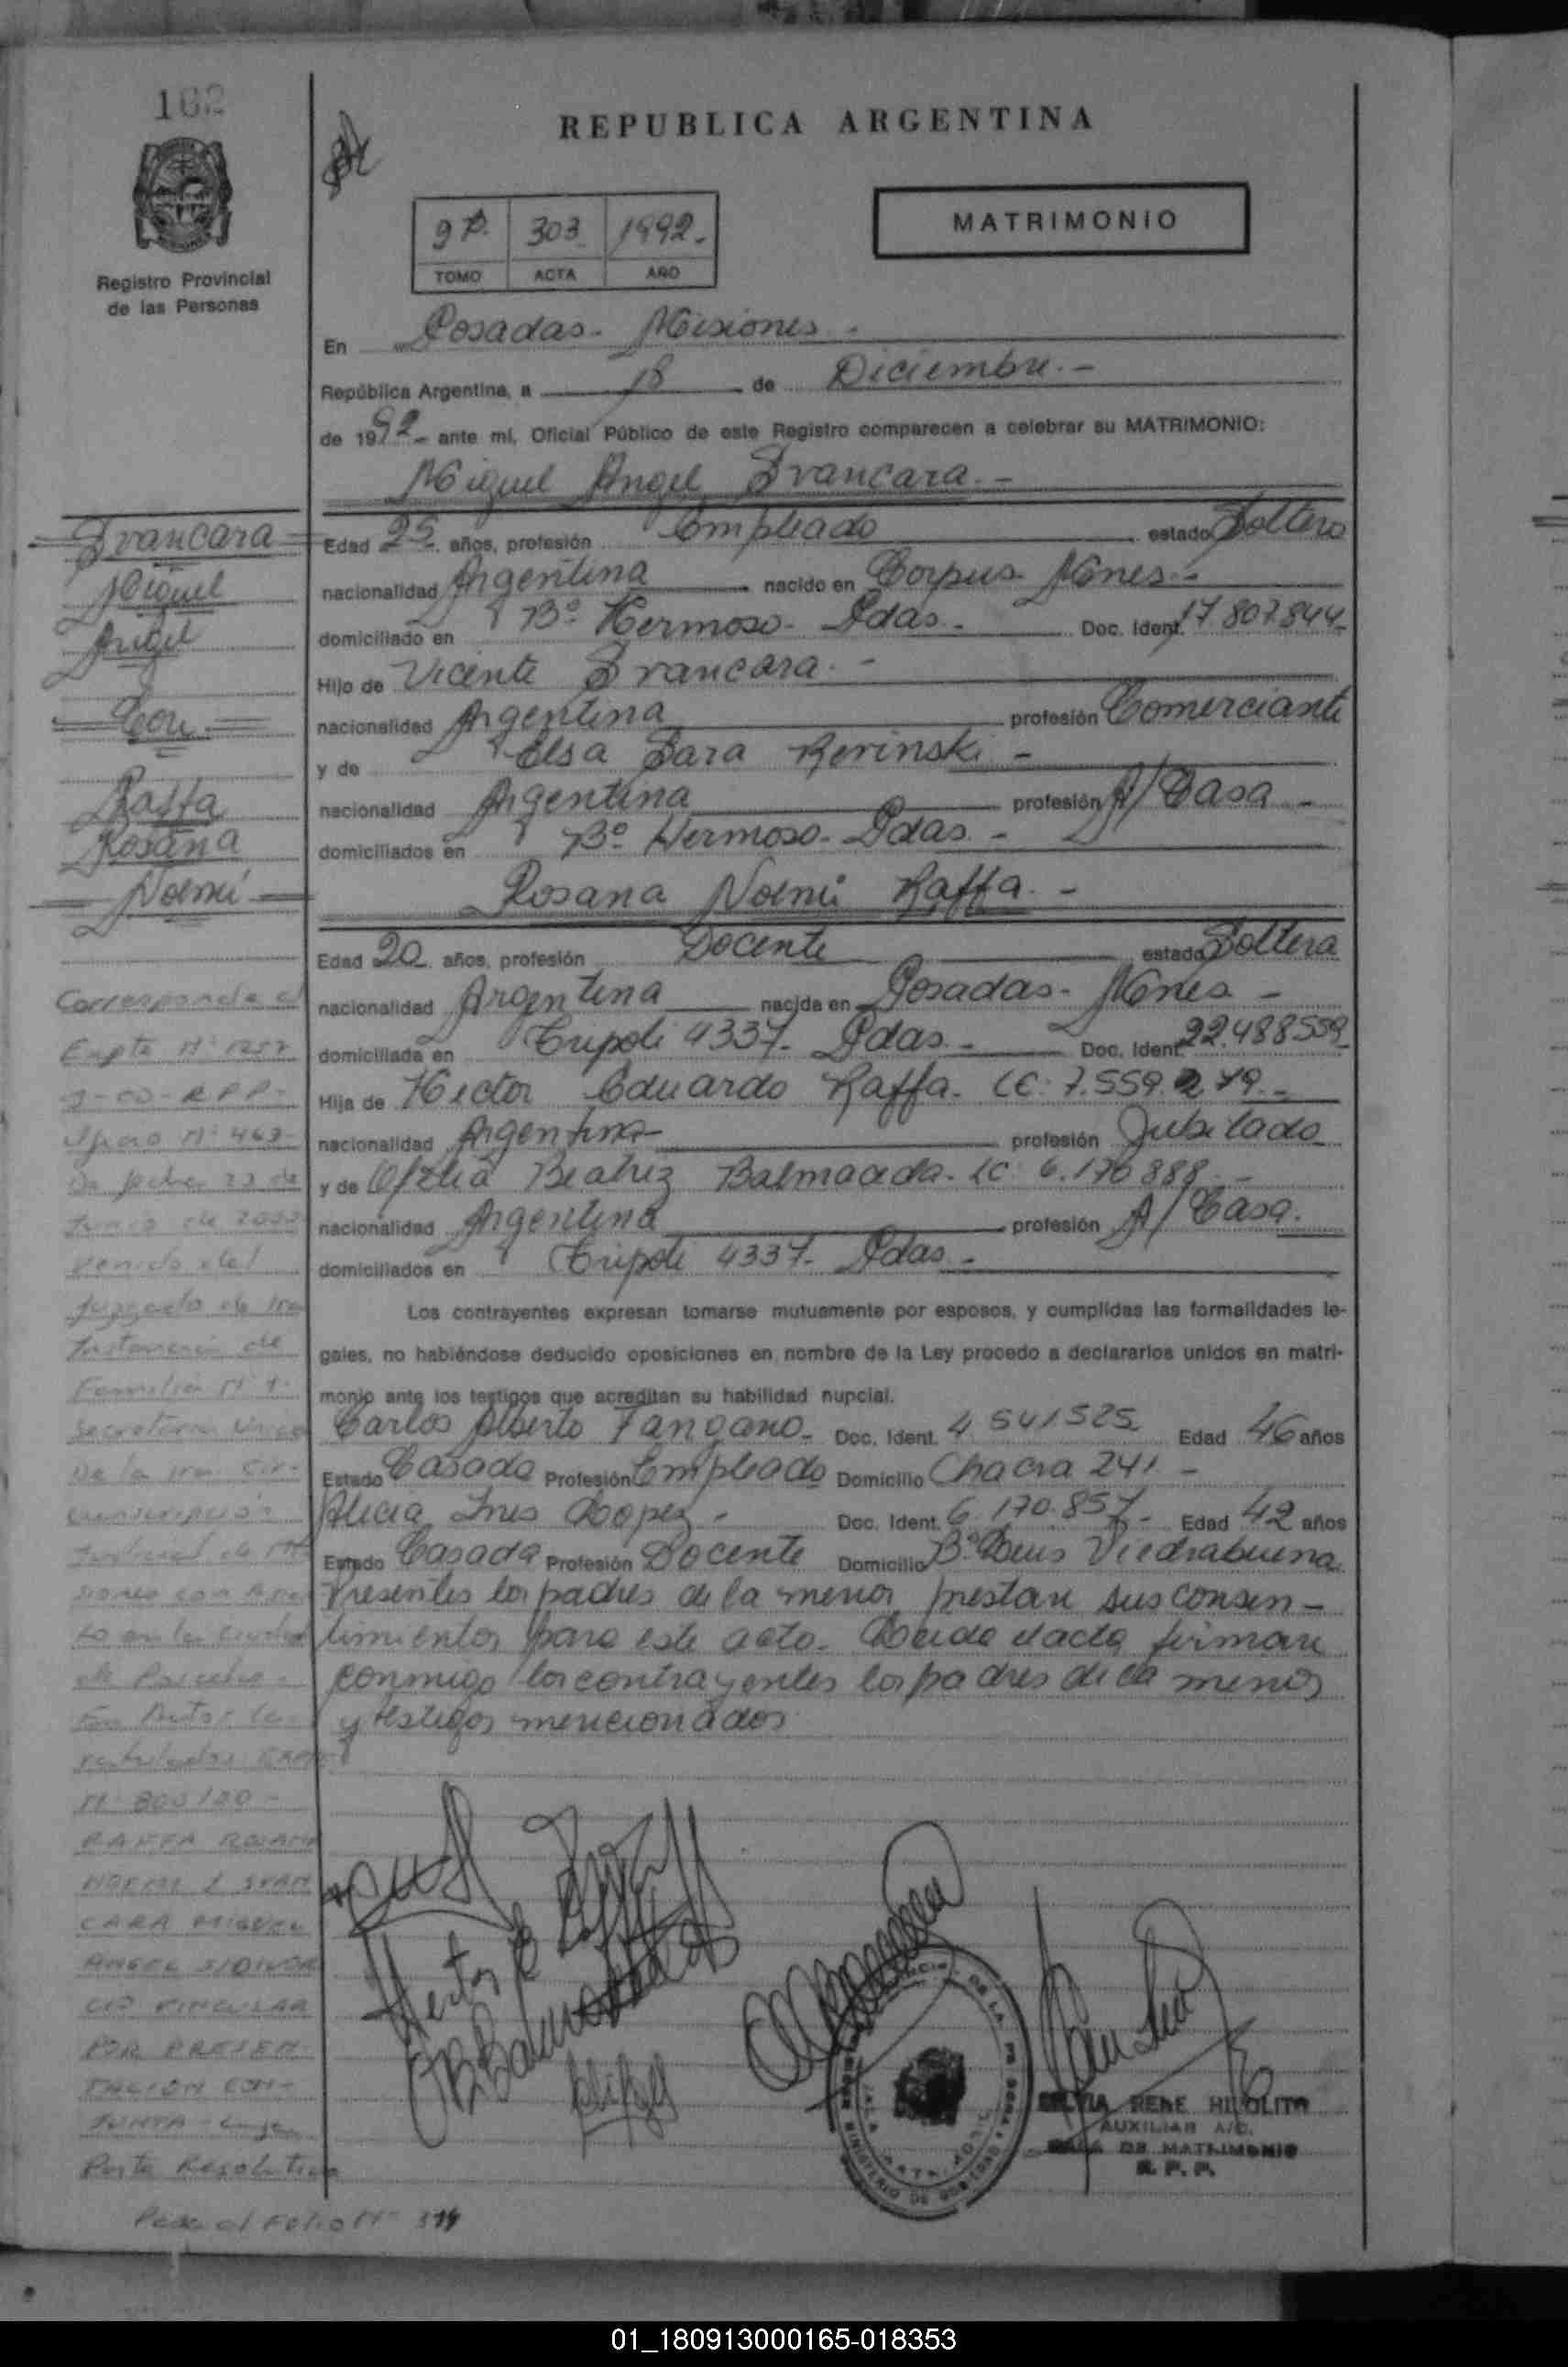 162
REPUBLICA ARGENTINA
9º P. 303 1992.-
TOMO ACTA AÑO
MATRIMONIO
Registro Provincial
de las Personas
En Posadas - Misiones.-
República Argentina, a 18 de Diciembre.-
de 1992.- ante mí, Oficial Público de este Registro comparecen a celebrar su MATRIMONIO:
Miguel Angel Svancara.-
Edad 25 años, profesión Empleado estado Soltero
nacionalidad Argentina nacido en Corpus Mnes.-
domiciliado en Bº Hermoso - Pdas.- Doc. Ident. 17.807.844-
Hijo de Vicente Svancara.-
nacionalidad Argentina profesión Comerciante
y de Elsa Sara
nacionalidad Argentina profesión A/ Casa -
domiciliados en Bº Hermoso - Pdas.-
Rosana Noemí Raffa.-
Edad 20 años, profesión Docente estado Soltera
nacionalidad Argentina nacida en Posadas - Mnes -
domiciliada en Tripoli 4337 - Pdas.- Doc. Ident. 22.488.559-
Hija de Hector Eduardo Raffa.
nacionalidad Argentina profesión Jubilado
y de Ofelia Beatriz Balmaceda - LC: 6.170.888.-
nacionalidad Argentina profesión A/ Casa.
domiciliados en Tripoli 4337 - Pdas.-
Los contrayentes expresan tomarse mutuamente por esposos, y cumplidas las formalidades le-
gales, no habiéndose deducido oposiciones en nombre de la Ley procedo a declararlos unidos en matri-
monio ante los testigos que acreditan su habilidad nupcial.
Carlos Alberto Fangano - Doc. Ident. 4.541525 Edad 46 años
Estado Casado Profesión Empleado Domicilio Chacra 241 -
Alicia Ines Lopez.- Doc. Ident. 6.170.857- Edad 42 años
Estado Casada Profesión Docente Domicilio Bº Luis Piedrabuena
Presentes los padres de la menor prestan sus consen-
timientos para este acto. Leida el acta firman
conmigo los contrayentes los padres de la menor
y testigos mencionados
Svancara
Miguel
Angel
Con
Raffa
Rosana
Noemí
Corresponde al
Expte Nº 1257
Oficio Nº 463-
De fecha 22 de
Junio de
venido del
Juzgado de 1ra
Instancia de
Familia Nº 1-
Secretaria Unica
De la 1ra Cir-
cunscripción
Judicial de Mi-
siones con Asien
to en la ciudad
de Posadas-
En Autos Ca
ratulados Expte
Nº 800/00-
RAFFA ROSANA
NOEMI Y SVAN
CARA MIGUEL
ANGEL S/DIVOR
CIO VINCULAR
POR PRESEN-
TACION CON-
JUNTA - Cuya
Parte Resolutiva
Pasa al Folio Nº
SILVIA RENE HIPOLITO
AUXILIAR A/C.
SALA DE MATRIMONIO
R. P. P.
01_180913000165-018353